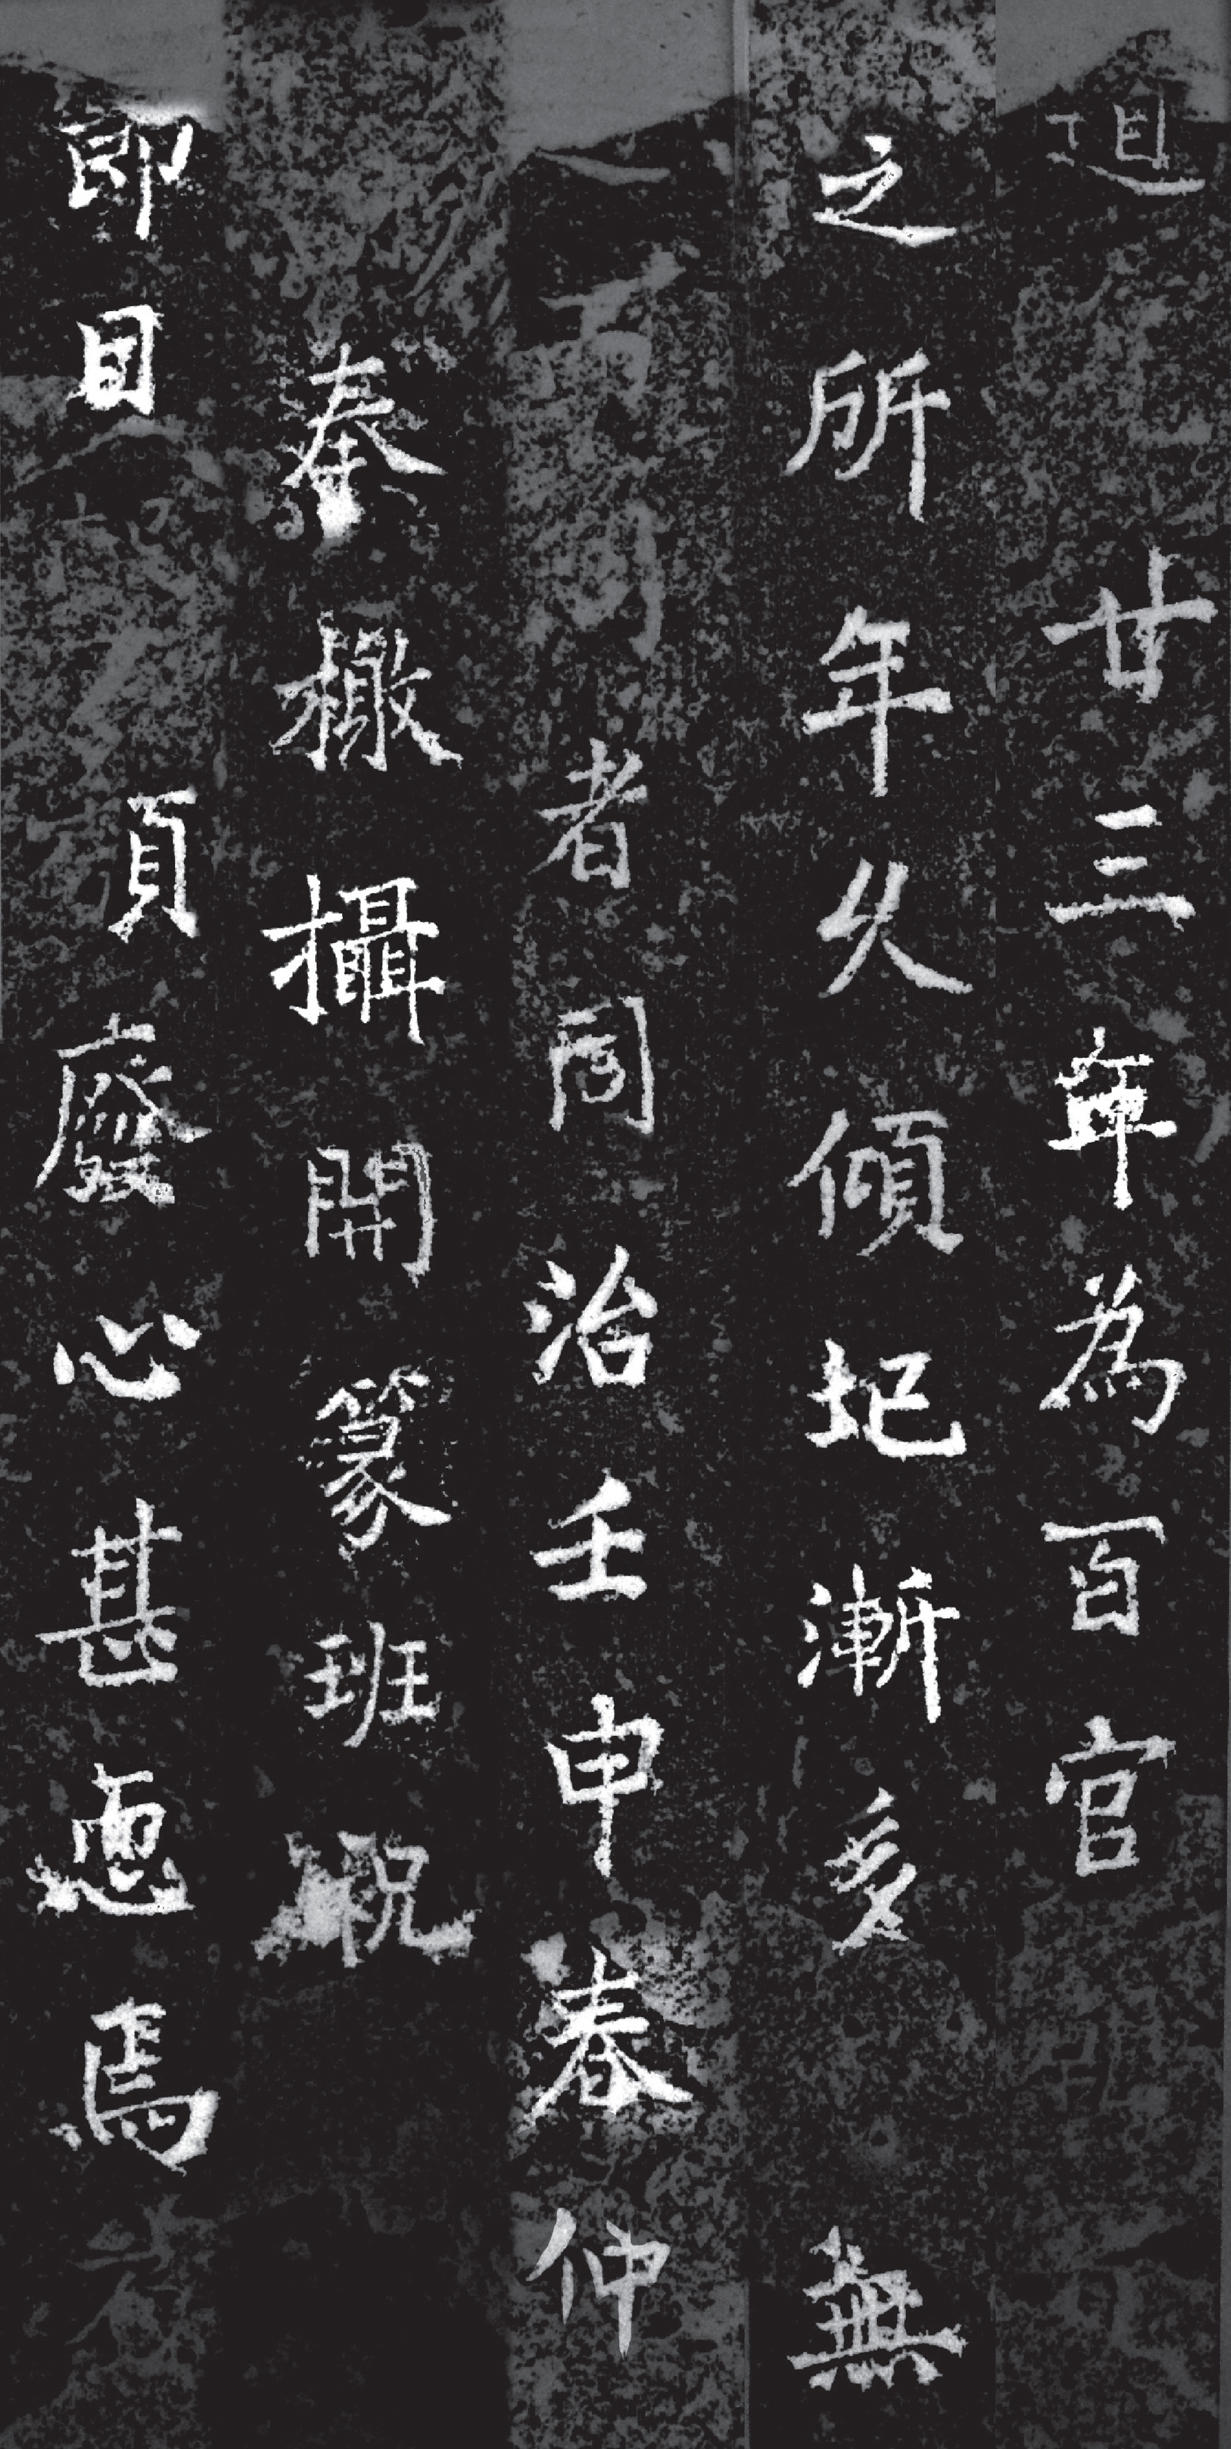 廿三年為百官
之所年久傾圮漸多無
者同治壬申春仲
奉檄攝開篆班祝
即目頁廢心甚恧焉